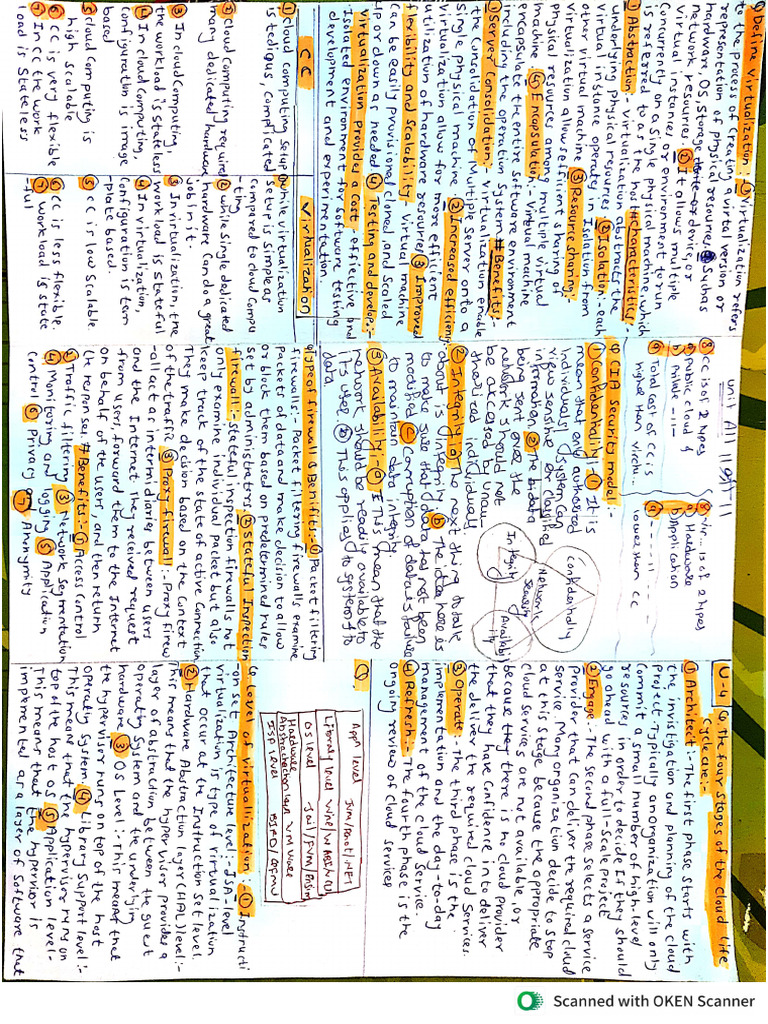 Q Define virtualization :- ① Virtualization refers
to the process of creating a virtual version or
representation of physical resources. Such as
hardware, OS, Storage device or
network resources. ② It allows multiple
virtual instances or environment to run
concurrently on a single physical machine, which
is referred to as the host. # characteristics :-
① Abstraction :- Virtualization abstracts the
underlying physical resources ② Isolation :- each
virtual instance operate in Isolation from
other virtual machine ③ Resource sharing :-
Virtualization allow efficient sharing of
physical resources among multiple virtual
machine. ④ Encapsulation :- Virtual machine
encapsulate the entire software environment
including the operation System. # Benefits :-
① Server Consolidation :- Virtualization enable
the consolidation of Multiple server on to a
single physical machine ② Increased efficiency
virtualization allow for more efficient
utilization of hardware resources ③ Improved
flexibility and Scalability :- Virtual machine
can be easily provisioned cloned, and scaled
up or down as needed ④ Testing and develop :-
Virtualization provides a cost effective and
Isolated environment for software testing
development and experimentation.
CC
① Cloud computing setup
is tedious, complicated
② cloud computing required
many dedicated hardware
③ In cloud computing,
the workload is stateless
④ In cloud computing,
Configuration is image
based
⑤ cloud Computing is
high scalable
⑥ CC is very flexible
⑦ In CC the work
load is stateless
Virtualization
while virtualization
Setup is simple as
compared to cloud compu
-ting
② while single dedicated
hardware can do a great
job in it.
③ In virtualization, the
workload is stateful
④ In virtualization,
Configuration is tem
-plate based.
⑤ CC is low scalable
⑥ CC is less flexible
⑦ workload is state
-ful
unit
⑧ CC is of 2 types
a public cloud &
b private -11-
⑨ Total cost of CC is
higher than virtu..
⑧ vir.. is of 2 types
a Hardware
b Application
⑨ - - - - - - -
lower than CC
Q CIA Security model :-
① Confidentiality :- ① It is
mean that only authorized
individuals / system can
view sensitive or classified
information ② The data
being sent over the
network should not
be accessed by unau-
thorized individuals
Confidentiality
Network
Security
Integrity
Availabi
lity
② Integrity :- ⓐ The next thing to talk
about is integrity ⓑ The idea here is
to make sure that data has not been
modified ⓒ Corruption of data is failure
to maintain data integrity
③ Availability :- ⓐ This mean that the
network should be readily available to
its user ⓑ This applies to system & to
data
Q Type of firewall & Benifits :- ① Packet filtering
firewalls :- Packet filtering firewalls examine
packets of data and make decision to allow
or block them based on predetermined rules
set by administrators ② Stateful Inspection
firewall :- Stateful inspection firewalls not
only examine individual packet but also
keep track of the state of active connection
They make decision based on the context
of the traffic ③ Proxy firewall :- Proxy firew
-all act as intermidiaries between users
and the Internet They received request
from users, forward them to the Internet
on behalf of the users and then return
the responses # Benefits :- ① Access Control
② Traffic filtering ③ Network Segmentation
④ Monitoring and logging ⑤ Application
control ⑥ Privacy and Anonymity
U-4 Q The four stages of the cloud life
Cycle are :-
① Architect :- The first phase starts with
the investigation and planning of the cloud
Project. Typically an organization will only
commit a small number of high-level
resources in order to decide If they should
go ahead with a full-scale project
② Engage :- The second phase selects a service
provider that can deliver the required cloud
service. Many organization decide to stop
at this stage because the appropriate
cloud services are not available, or
because they there is no cloud provider
that they have confidence in to deliver
the deliver the required cloud services.
③ Operate :- The third phase is the
implementation and the day-to-day
management of the cloud service.
④ Refresh :- The fourth phase is the
ongoing review of cloud services
Appn level
Library level
OS level
Hardware
Abstraction
ISA level
Q Level of virtualization :- ① Instructi
on set Architecture level :- ISA-level
virtualization is type of virtualization
that occur at the Instruction set level.
② Hardware Abstraction layer (HAL) level :-
This means that the hypervisor provides a
layer of abstraction between the guest
operating system and the underlying
hardware ③ OS Level :- This meant that
the hypervisor runs on top of the host
operating system. ④ Library Support level :-
This means that the hypervisor runs on
top of the host OS ⑤ Application level -
This means that the hypervisor is
implemented as a layer of software that
Scanned with OKEN Scanner